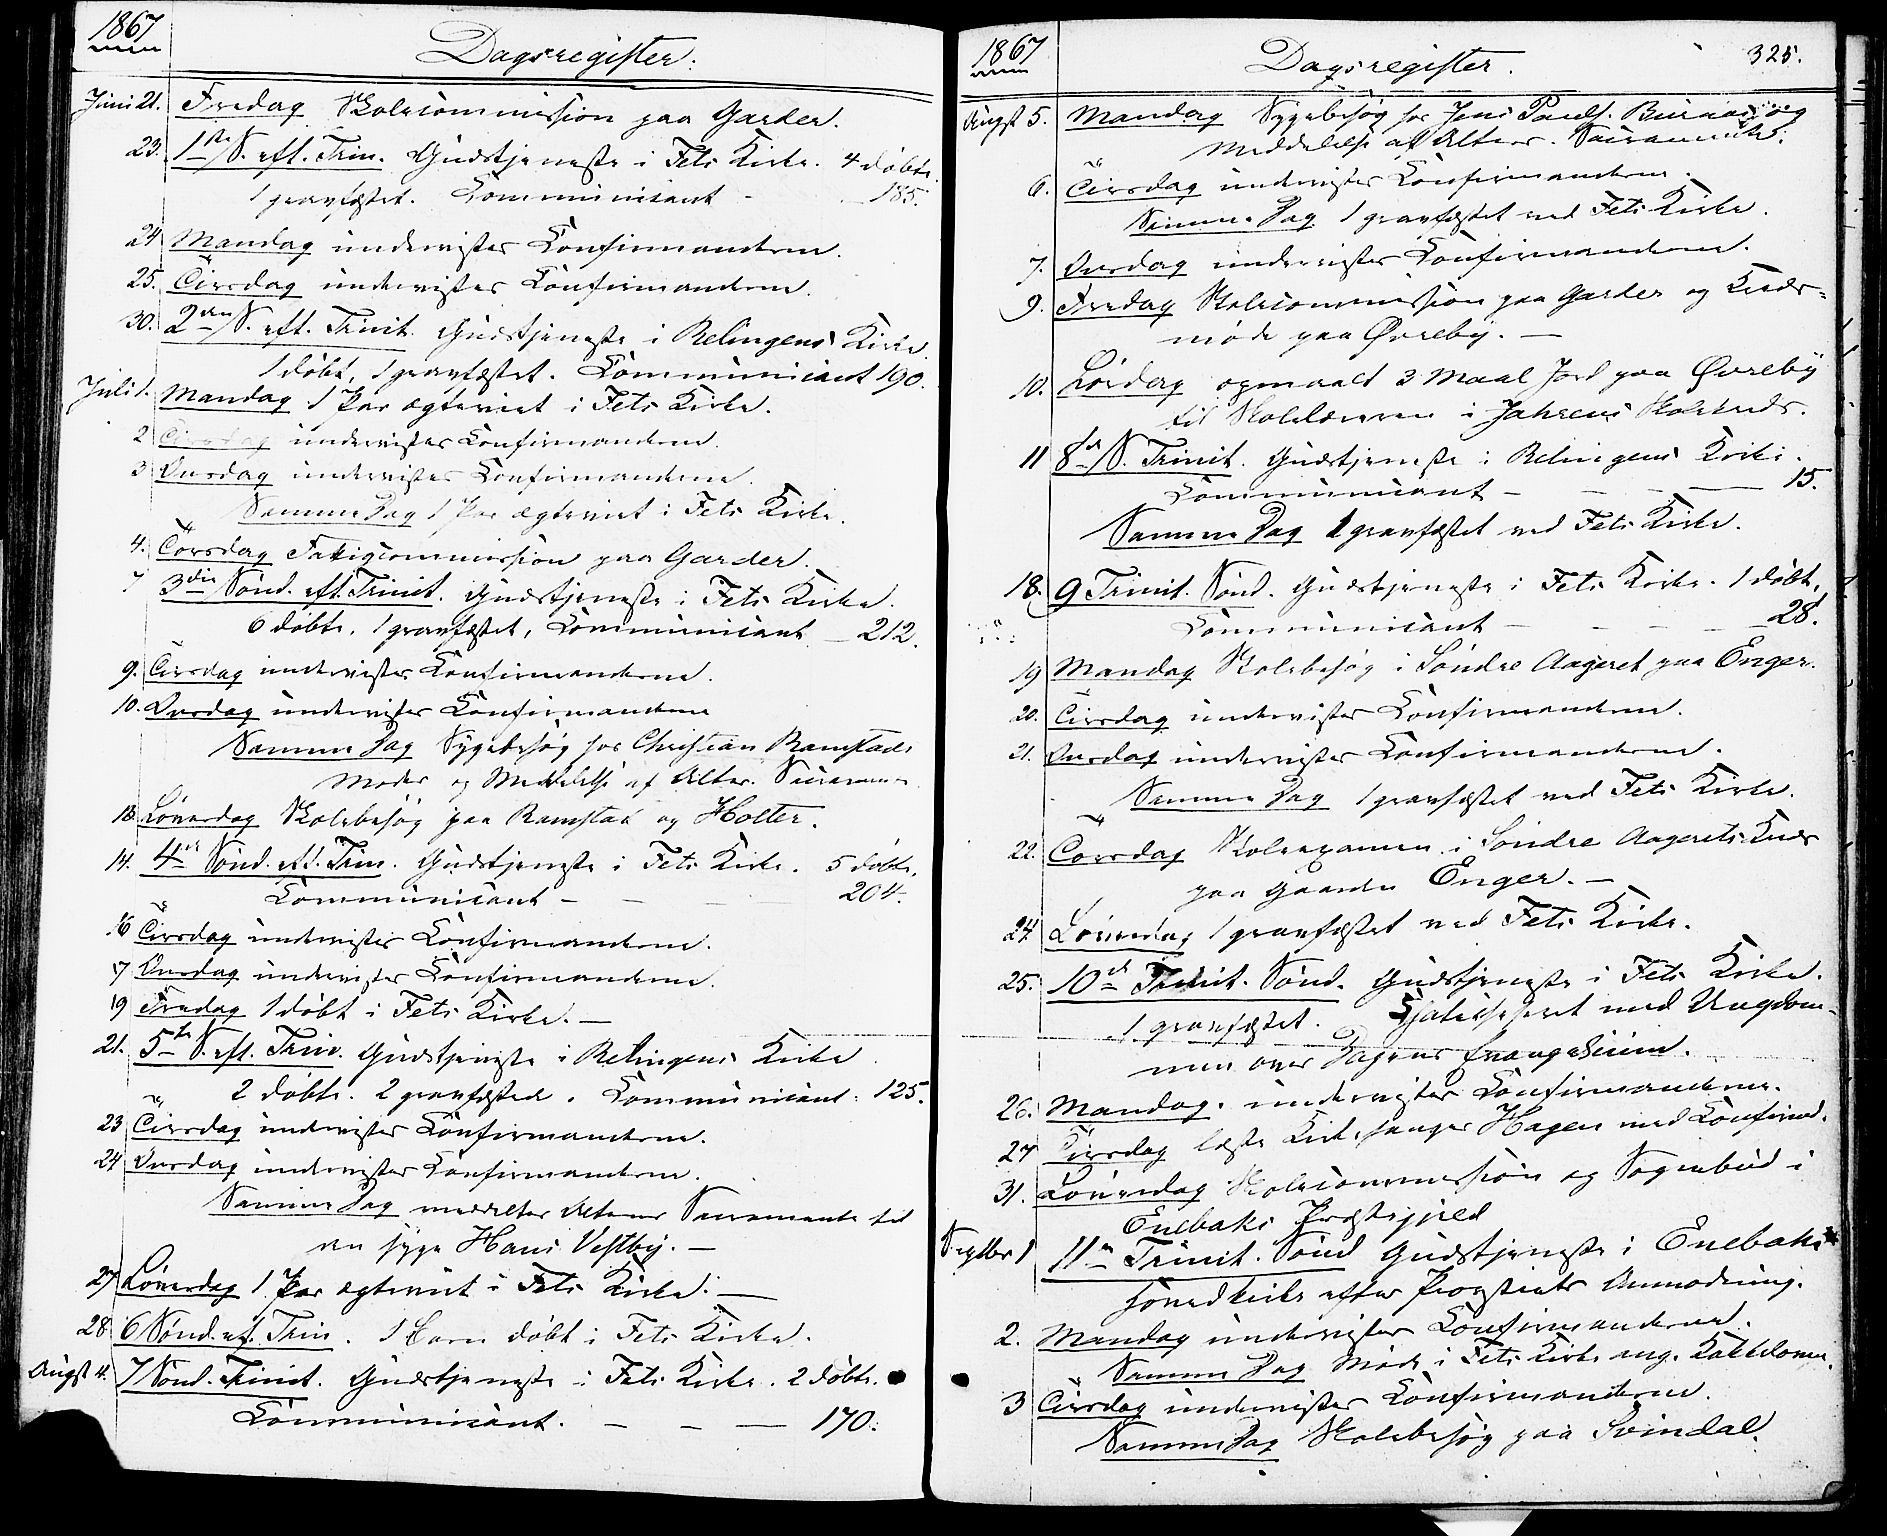 1867
Dagsregister.
Juni 21. Fredag Skolecommission paa Garder.
23. 1ste S. eft. Trin. Gudstjeneste i Fets Kirke. 4 döbte.
1 gravfæstet. Communicant - 185.
24 Mandag undervistes Confirmanderne.
25. Tirsdag undervistes Confirmanderne.
30. 2den S. eft. Trinit. Gudstjeneste i Relingens Kirke.
1 döbt, 1 gravfæstet. Communicant 190.
Juli 1. Mandag 1 Par ægteviet i Fets Kirke.
2 Tirsdag undervistes Confirmanderne.
3 Onsdag undervistes Confirmanderne.
Samme Dag 1 Par ægteviet i Fets Kirke.
4. Torsdag Fattigcommission paa Garder.
7 3die Sönd. eft. Trinit. Gudstjeneste i Fets Kirke.
6 döbte, 1 gravfæstet, Communicant - 212.
9. Tirsdag undervistes Confirmanderne.
10. Onsdag undervistes Confirmanderne
Samme Dag Sygebesög hos Christian Ramstads
Moder og Meddelelse af Alter. Sacrament
13. Löverdag Skolebesög paa Ramstad og Holter.
14. 4de Sönd. eft. Trin. Gudstjeneste i Fets Kirke. 5 döbte.
Communicant - - - 204.
16 Tirsdag undervistes Confirmanderne.
17 Onsdag undervistes Confirmanderne.
19 Fredag 1 döbt i Fets Kirke. -
21. 5te S. eft. Trin. Gudstjeneste i Relingens Kirke
2 döbte. 2 gravfæstede. Communicant: 125.
23 Tirsdag undervistes Confirmanderne.
24 Onsdag undervistes Confirmanderne.
Samme Dag meddeltes Alterens Sacramente til
en syge Hans Vestby. -
27 Löverdag 1 Par ægteviet i Fets Kirke. -
28 6 Sönd. ef. Trin. 1 Barn döbt i Fets Kirke.
Augst 4. 7 Sönd. Trinit. Gudstjeneste i Fets Kirke. 2 döbte.
Communicant. - - - 170.
1867
Dagsregister.
325.
Augst 5. Mandag Sygebesög hos Jens Pauls. Buraas og
Meddelelse af Alter. Sacramentet.
6. Tirsdag undervistes Confirmanderne.
Samme Dag 1 gravfæstet ved Fets Kirke.
7. Onsdag undervistes Confirmanderne.
9. Fredag Skolecommission paa Garder og Kreds-
möde paa Övreby. -
10. Lördag opmaalt 3 Maal Jord paa Övreby
til Skolelæreren i Jahrens Skolekreds.
11 8de S. Trinit. Gudstjeneste i Relingens Kirke.
Communicant - - - 15.
Samme Dag 1 gravfæstet ved Fets Kirke.
18. 9 Trinit. Sönd. Gudstjeneste i Fets Kirke. 1 döbt,
Communicant - - - 28.
19 Mandag Skolebesög i Söndre Aageret paa Enger.
20. Tirsdag undervistes Confirmanderne.
21. Onsdag undervistes Confirmanderne.
Samme Dag 1 gravfæstet ved Fets Kirke.
22. Torsdag Skoleexamen i Söndre Aagerets Kreds
paa Gaarden Enger. -
24. Löverdag 1 gravfæstet ved Fets Kirke.
25. 10de Trinit. Sönd. Gudstjeneste i Fets Kirke.
1 gravfæstet. Chatechiseret med Ungdom-
men over Dagens Evangelium.
26. Mandag. undervistes Confirmanderne.
27 Tirsdag læste Kirkesanger Hagen med Confirmd.
31. Löverdag Skolecommission og Sognebud i
Enebaks Præstegjeld
Septbr 1 11te Trinit. Sönd Gudstjeneste i Enebaks
Hovedkirke efter Provstiets Anmodning.
2. Mandag undervistes Confirmanderne.
Samme Dag Möde i Fets Kirke ang. Kakkelovne.
3 Tirsdag undervistes Confirmanderne.
Samme Dag Skolebesög paa Svindal.